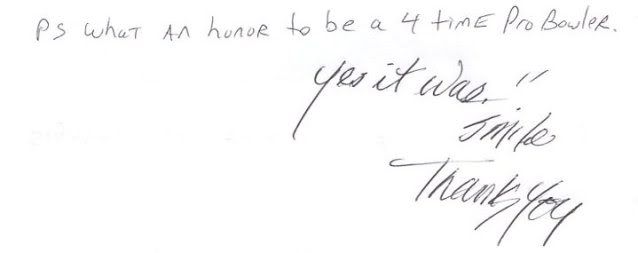 PS WHAT AN HONOR to be a 4 time Pro Bowler.
Yes it was."
J Mike
Thank You